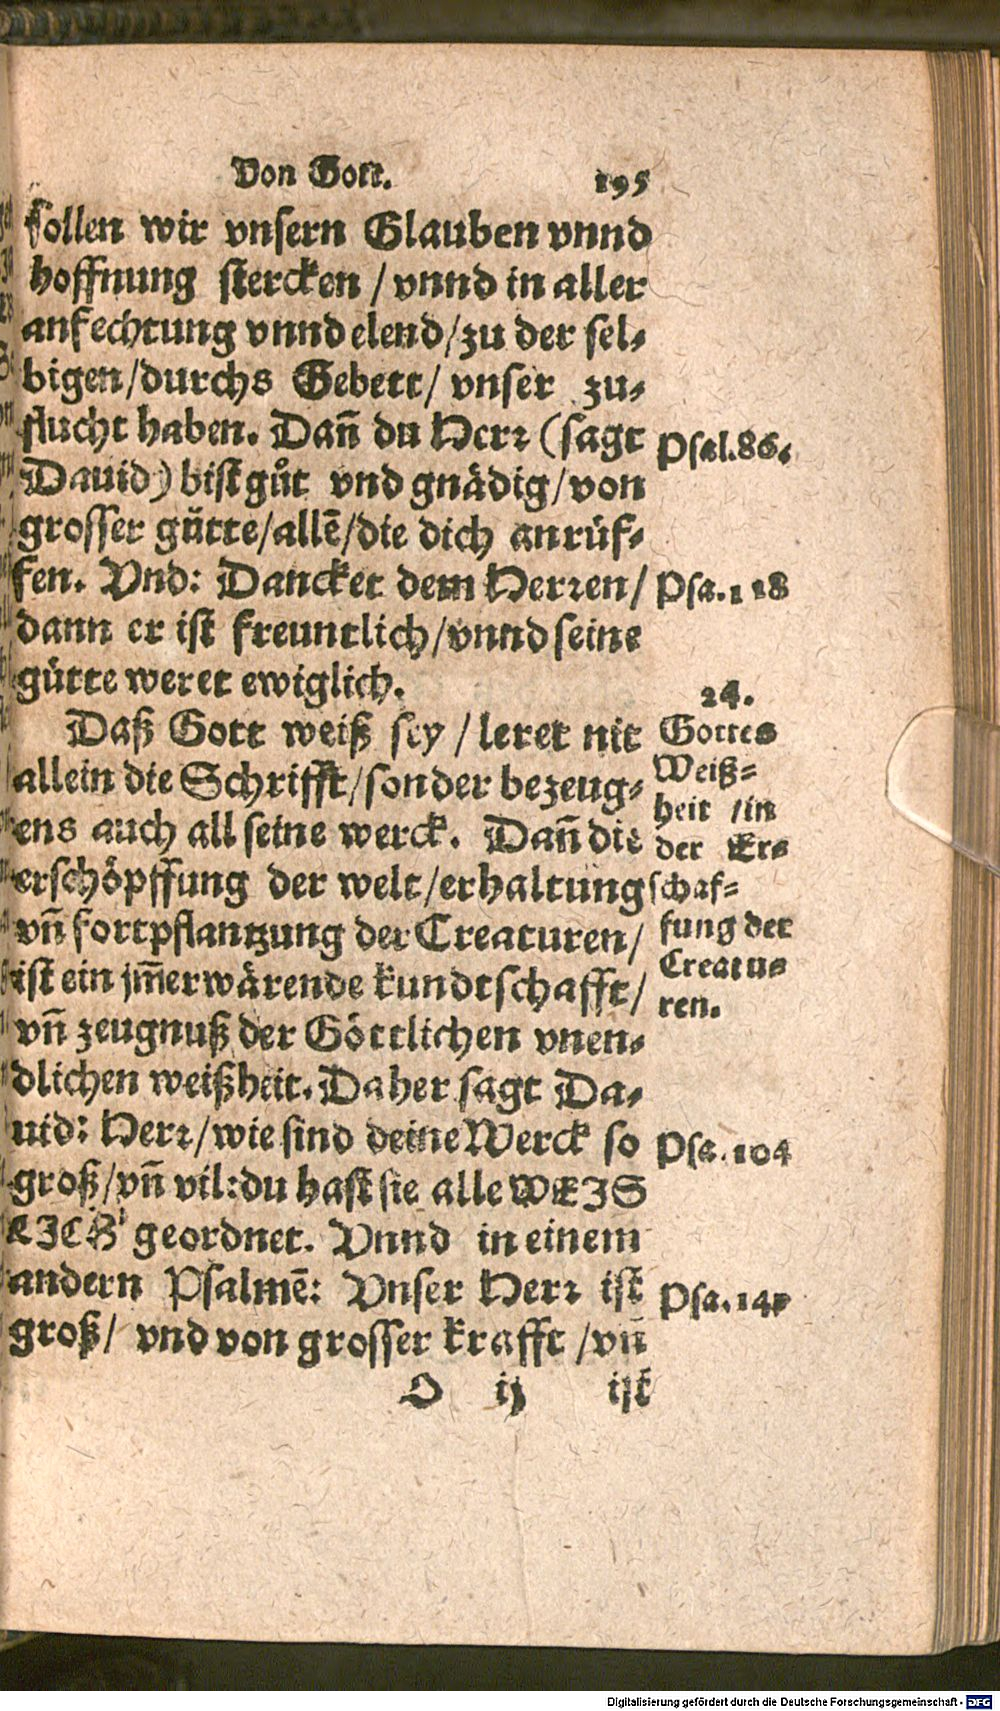 Von Gott. 195
sollen wir vnsern Glauben vnnd
hoffnung stercken / vnnd in aller
anfechtung vnnd elend/zu der sel-
bigen/durchs Gebett/ vnser zu-
flucht haben. Dañ du Herr (sagt
Dauid) bist gůt vnd gnådig/von
grosser gütte/allē/die dich anrüf-
fen. Vnd: Dancket dem Herren/
dann er ist freuntlich/vnnd seine
gütte weret ewiglich.
Daß Gott weiß sey / leret nit
allein die Schrifft/sonder bezeug-
ens auch all seine werck. Dañ die
erschöpffung der welt/erhaltung
vñ fortpflantzung der Creaturen/
ist ein jm̄erwärende kundtschafft/
vñ zeugnuß der Göttlichen vnen-
dlichen weißheit. Daher sagt Da-
uid: Herr/wie sind deine Werck so
groß/vñ vil:du hast sie alle WEIS
LICH geordnet. Vnnd in einem
andern Psalmē: Vnser Herr ist
groß/ vnd von grosser krafft /vñ
O ij ist
Psal.86.
Psa.118
24.
Gottes
Weiß=
heit /in
der Er-
schaf=
fung der
Creatu-
ren.
Psa.104
Psa.147
Digitalisierung gefördert durch die Deutsche Forschungsgemeinschaft - DFG